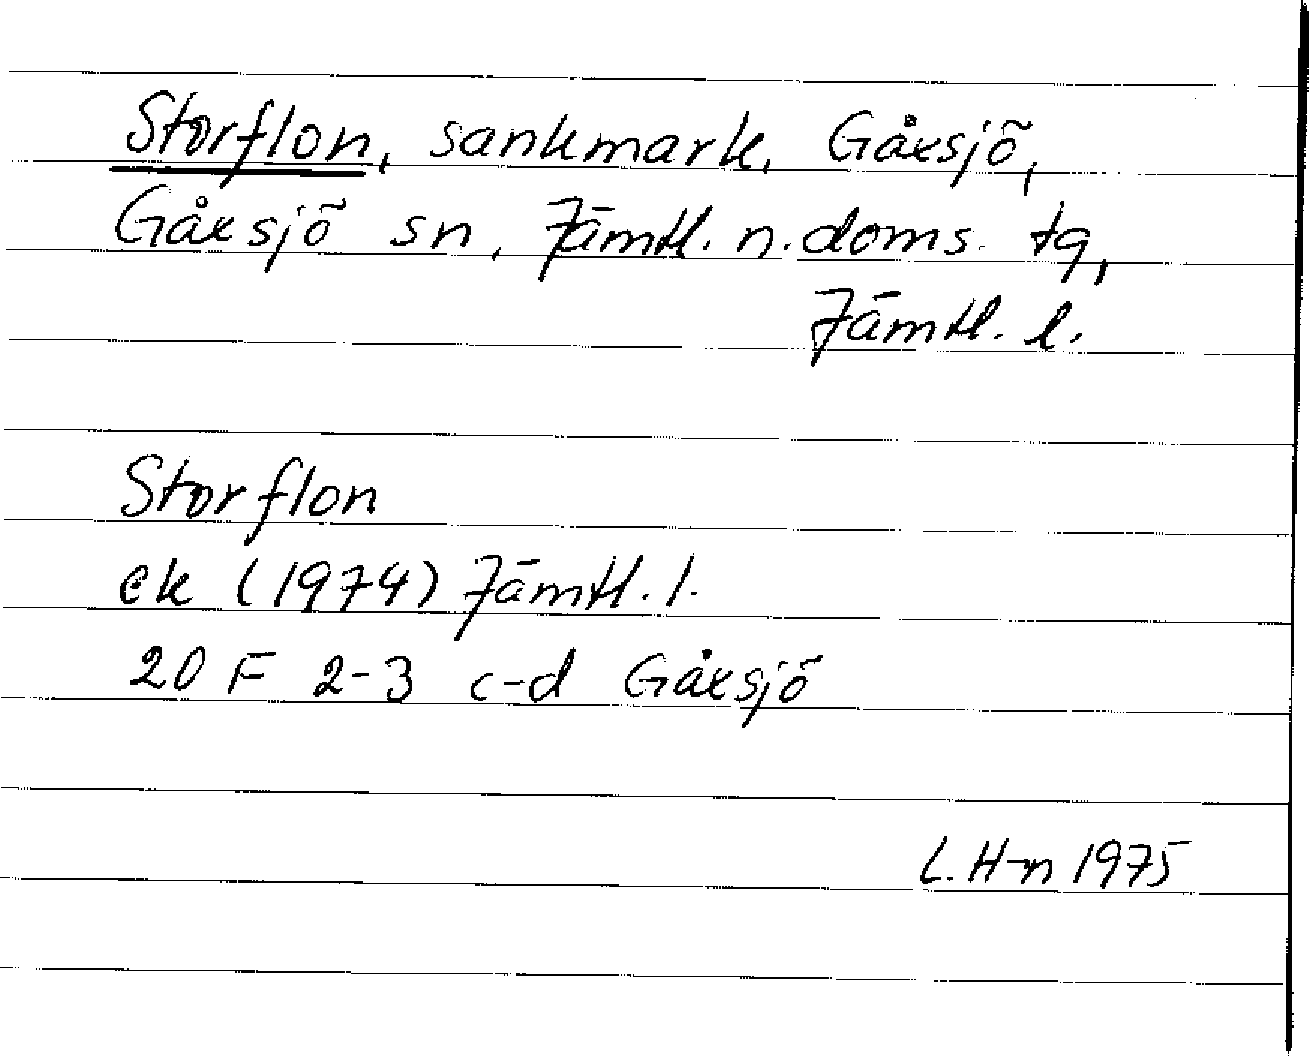 Storflon, sankmark, Gåxsjö,
Gåxsjö sn, Jämtl. n. doms. tg,
Jämtl. l.
Storflon
ek (1974) Jämtl. l.
20 F 2-3 c-d Gåxsjö
L. H-n 1975